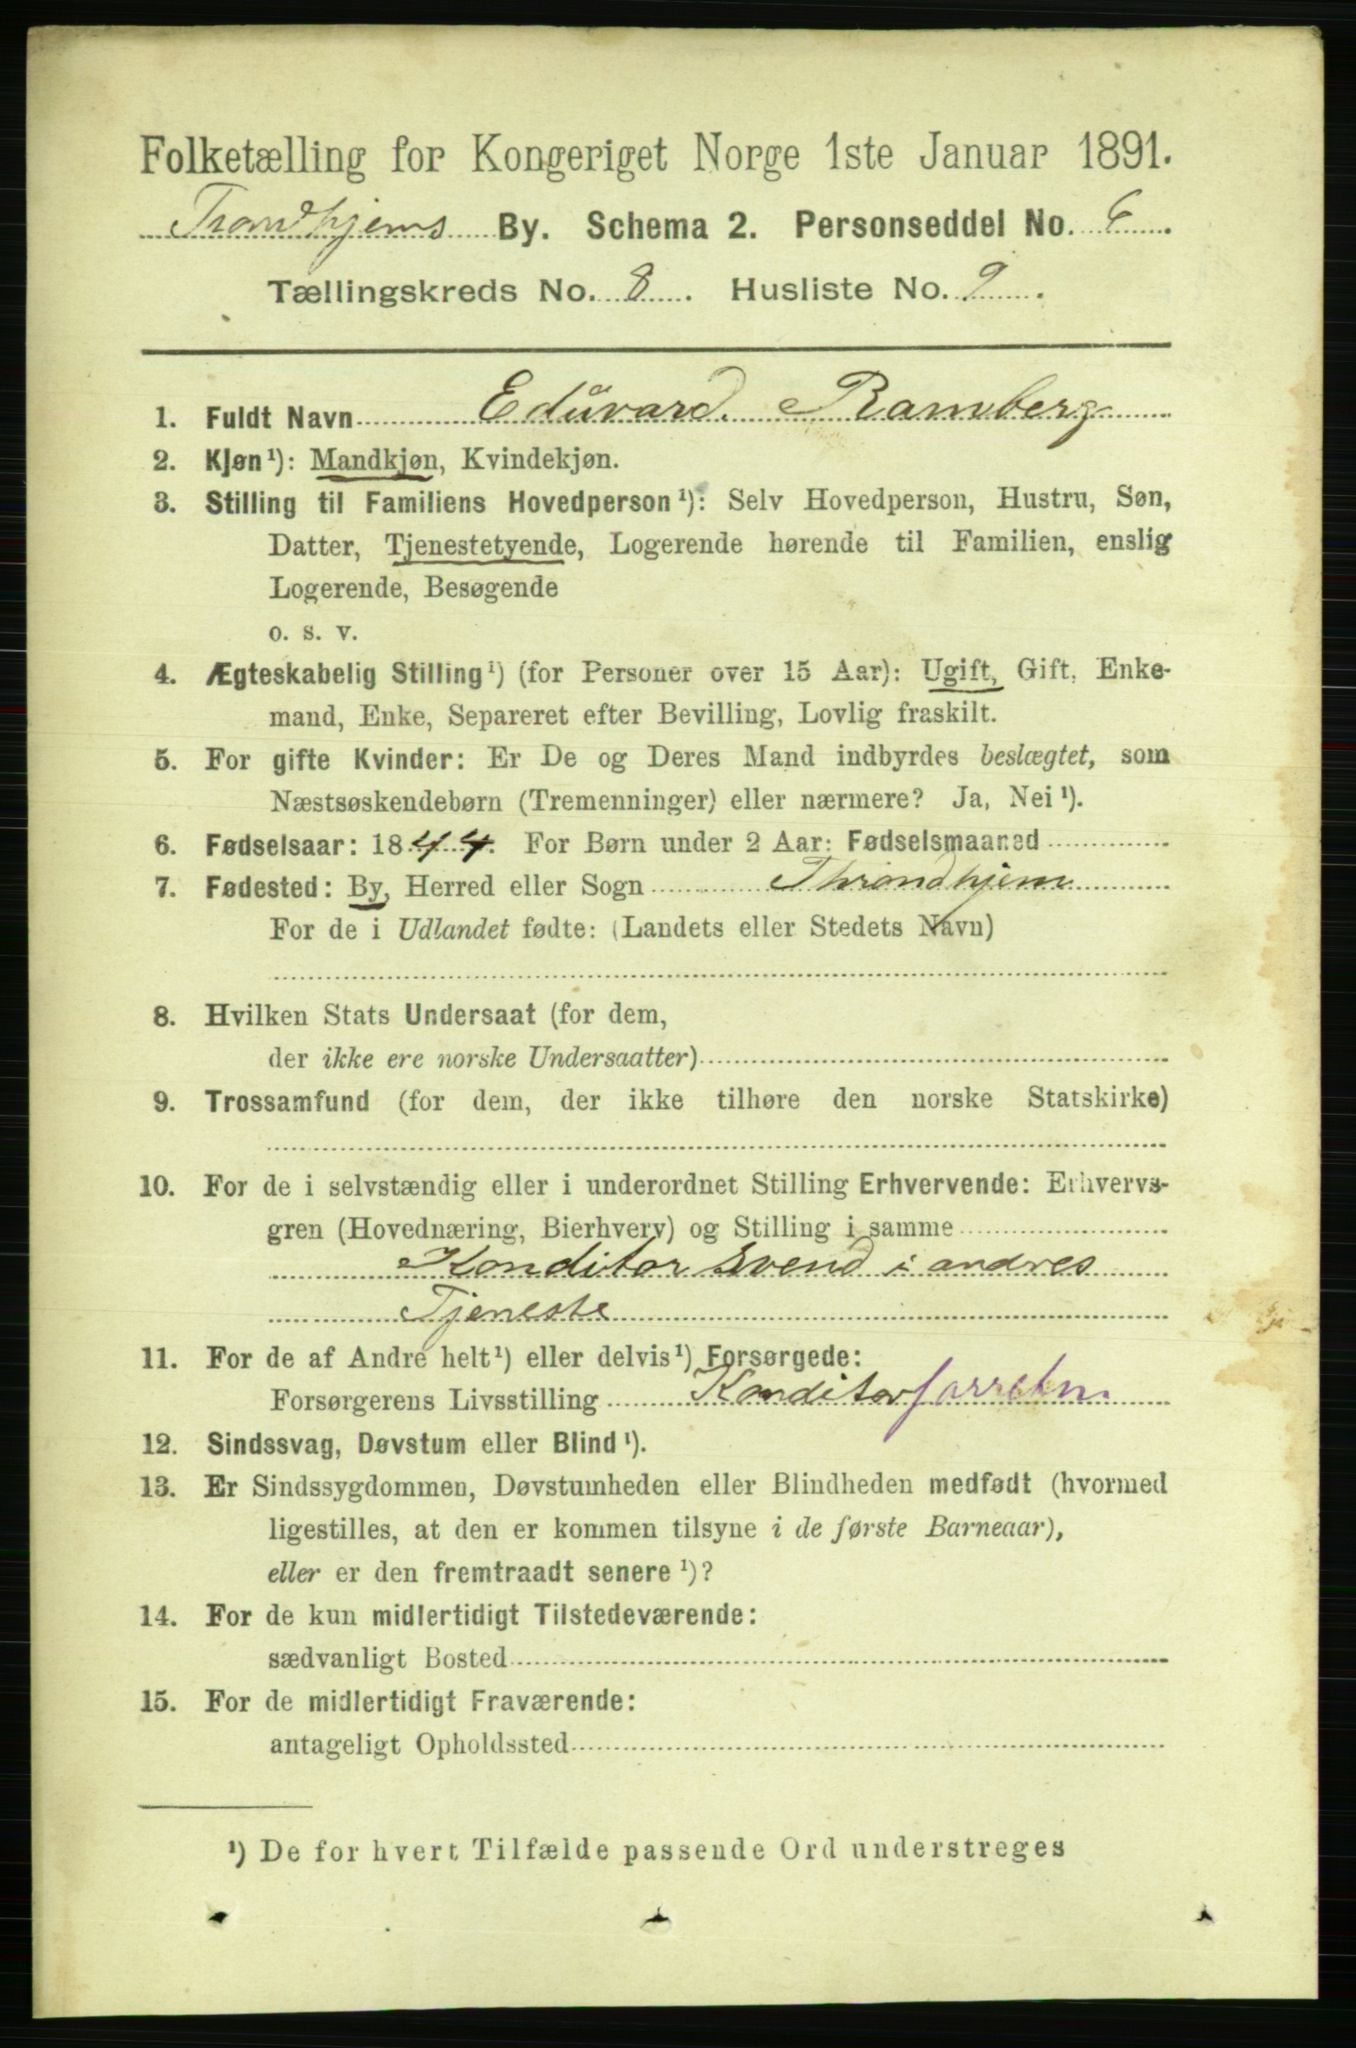 Folketælling for Kongeriget Norge 1ste Januar 1891.
Trondhjems By. Schema 2. Personseddel No. 6.
Tællingskreds No. 8. Husliste No. 9.
1. Fuldt Navn Eduvard. Ramberg
2. Kjøn¹): Mandkjøn, Kvindekjøn.
3. Stilling til Familiens Hovedperson¹): Selv Hovedperson, Hustru, Søn,
Datter, Tjenestetyende, Logerende hørende til Familien, enslig
Logerende, Besøgende
o. s. v.
4. Ægteskabelig Stilling¹) (for Personer over 15 Aar): Ugift, Gift, Enke-
mand, Enke, Separeret efter Bevilling, Lovlig fraskilt.
5. For gifte Kvinder: Er De og Deres Mand indbyrdes beslægtet, som
Næstsøskendebørn (Tremenninger) eller nærmere? Ja, Nei¹).
6. Fødselsaar: 1844. For Børn under 2 Aar: Fødselsmaaned
7. Fødested: By, Herred eller Sogn Throndhjem
For de i Udlandet fødte: (Landets eller Stedets Navn)
8. Hvilken Stats Undersaat (for dem,
der ikke ere norske Undersaatter)
9. Trossamfund (for dem, der ikke tilhøre den norske Statskirke)
10. For de i selvstændig eller i underordnet Stilling Erhvervende: Erhvervs-
gren (Hovednæring, Bierhverv) og Stilling i samme
Konditor svend i andres
Tjeneste
11. For de af Andre helt¹) eller delvis¹) Forsørgede:
Forsørgerens Livsstilling Konditor
12. Sindssvag, Døvstum eller Blind¹).
13. Er Sindssygdommen, Døvstumheden eller Blindheden medfødt (hvormed
ligestilles, at den er kommen tilsyne i de første Barneaar),
eller er den fremtraadt senere¹)?
14. For de kun midlertidigt Tilstedeværende:
sædvanligt Bosted
15. For de midlertidigt Fraværende:
antageligt Opholdssted
¹) De for hvert Tilfælde passende Ord understreges